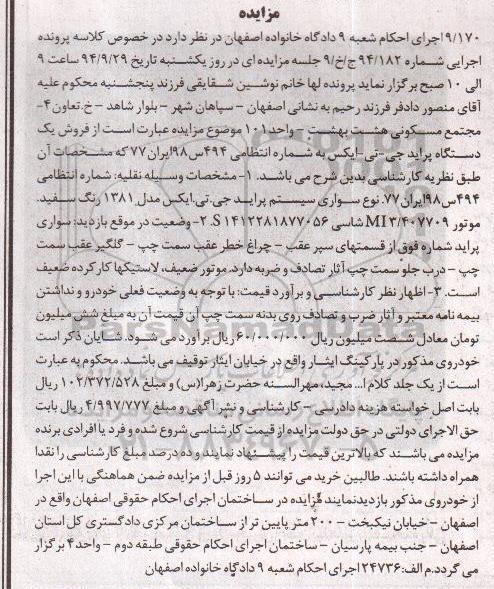 مزایده
۹/۱۷۰ اجرای احکام شعبه ۹ دادگاه خانواده اصفهان در نظر دارد در خصوص کلاسه پرونده
اجرایی شماره ۹۴/۱۸۲ ج/خ/۹ جلسه مزایده ای در روز یکشنبه تاریخ ۹۴/۹/۲۹ ساعت ۹
الی ۱۰ صبح برگزار نماید پرونده لها خانم نوشین شقایقی فرزند پنجشنبه محکوم علیه
آقای منصور دادفر فرزند رحیم به نشانی اصفهان - سپاهان شهر - بلوار شاهد - خ.تعاون ۴-
مجتمع مسکونی هشت بهشت - واحد ۱۰۱ موضوع مزایده عبارت است از فروش یک
دستگاه پراید جی-تی-ایکس به شماره انتظامی ۴۹۴س۹۸ایران۷۷ که مشخصات آن
طبق نظریه کارشناسی بدین شرح می باشد. ۱- مشخصات وسیله نقلیه: شماره انتظامی
۴۹۴س۹۸ایران۷۷. نوع سواری سیستم پراید جی.تی.ایکس مدل ۱۳۸۱ رنگ سفید.
موتور MI۳/۴۰۷۷۰۹ شاسی S۱۴۱۲۲۸۱۸۷۷۰۵۶. ۲- وضعیت در موقع بازدید: سواری
پراید شماره فوق از قسمتهای سپر عقب - چراغ خطر عقب سمت چپ - گلگیر عقب سمت
چپ - درب جلو سمت چپ آثار تصادف و ضربه دارد. موتور ضعیف، لاستیکها کارکرده ضعیف
است. ۳- اظهار نظر کارشناسی و برآورد قیمت: با توجه به وضعیت فعلی خودرو و نداشتن
بیمه نامه معتبر و آثار ضرب و تصادف روی بدنه سمت چپ آن قیمت آن به مبلغ شش میلیون
تومان معادل شصت میلیون ریال ۶۰/۰۰۰/۰۰۰ ریال برآورد می شود. شایان ذکر است
خودروی مذکور در پارکینگ ایثار واقع در خیابان ایثار توقیف می باشد. محکوم به عبارت
است از یک جلد کلام ا... مجید، مهرالسنه حضرت زهرا(س) و مبلغ ۱۰۲/۳۷۲/۵۲۸ ریال
بابت اصل خواسته هزینه دادرسی - کارشناسی و نشر آگهی و مبلغ ۴/۹۹۷/۷۷۷ ریال بابت
حق الاجرای دولتی در حق دولت مزایده از قیمت کارشناسی شروع شده و فرد یا افرادی برنده
مزایده می باشند که بالاترین قیمت را پیشنهاد نمایند و ده درصد مبلغ کارشناسی را نقدا
همراه داشته باشند. طالبین خرید می توانند ۵ روز قبل از مزایده ضمن هماهنگی با این اجرا
از خودروی مذکور بازدیدنمایند مزایده در ساختمان اجرای احکام حقوقی اصفهان واقع در
اصفهان - خیابان نیکبخت - ۲۰۰ متر پایین تر از ساختمان مرکزی دادگستری کل استان
اصفهان - جنب بیمه پارسیان - ساختمان اجرای احکام حقوقی طبقه دوم - واحد ۴ برگزار
می گردد.م الف: ۲۴۷۳۶ اجرای احکام شعبه ۹ دادگاه خانواده اصفهان